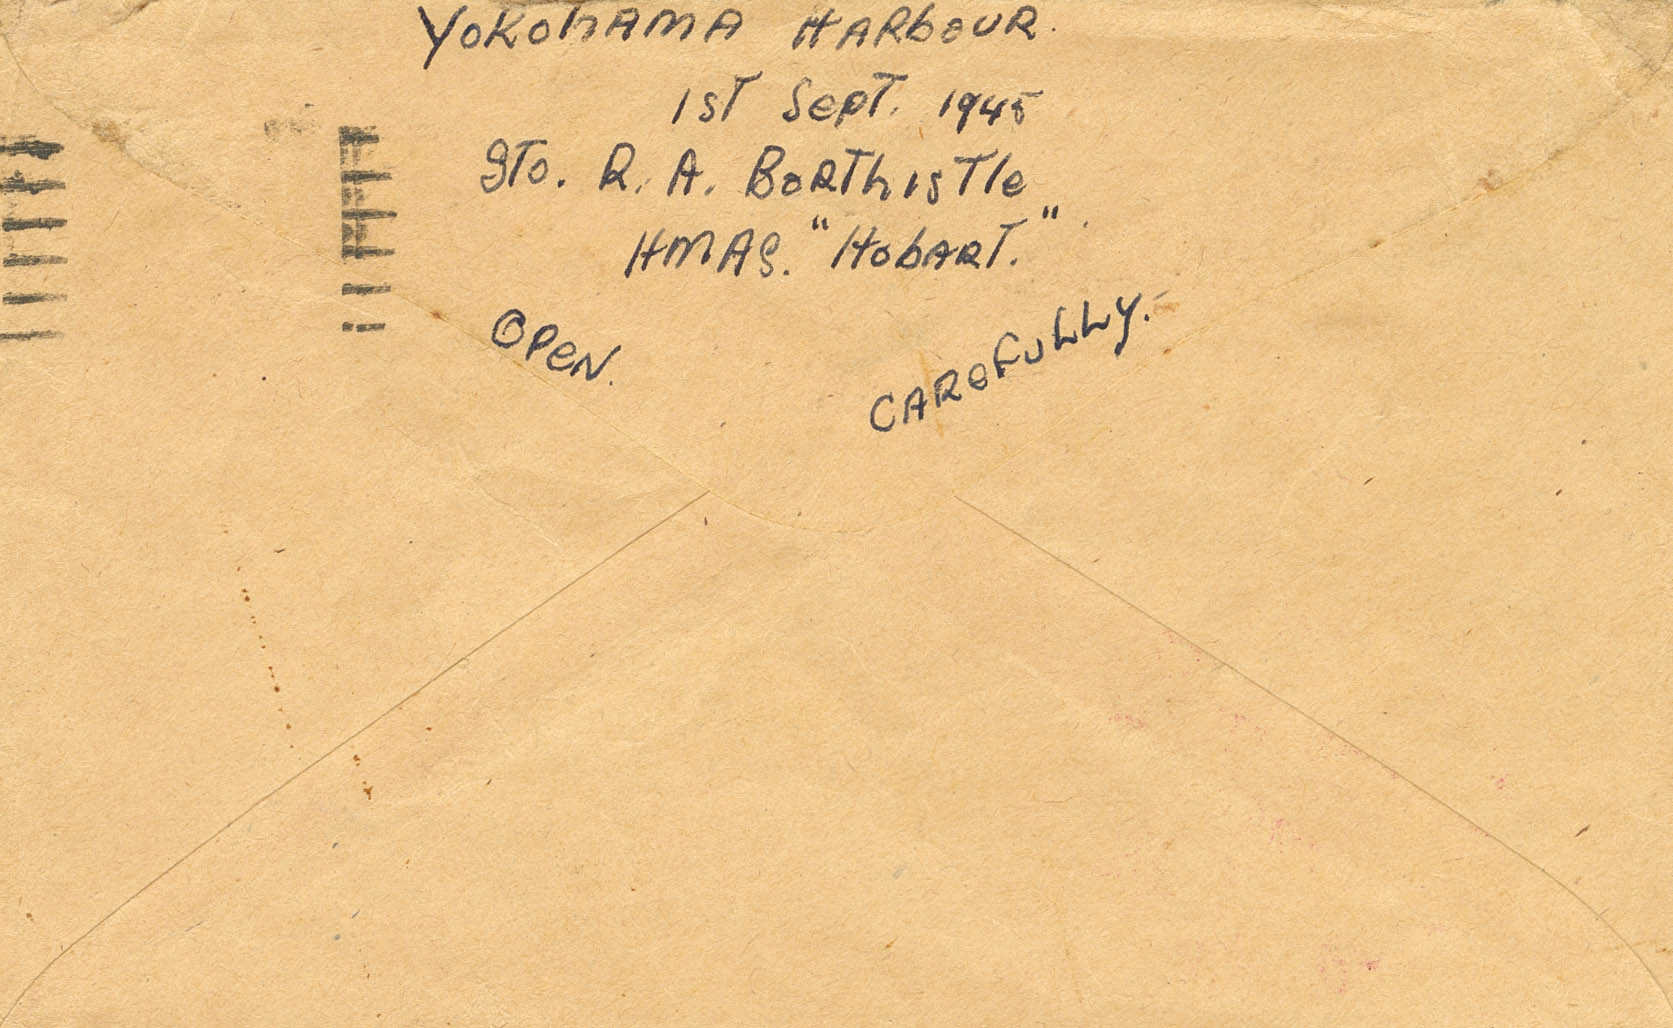 YOKOhAMA HARbOUR.
1ST SepT. 1945
STO. R. A. BORThISTle
HMAS. "HObART."
OPeN. CAReFULLY.